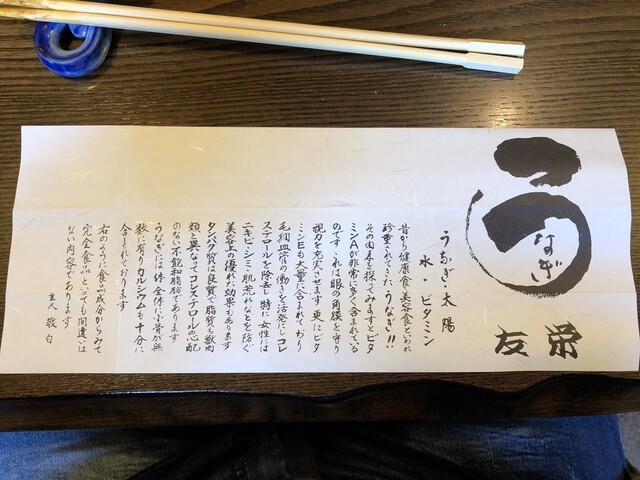 うなぎ
友栄
うなぎ・太陽
水・ビタミン
昔から健康食・美容食といわれ
珍重されてきたうなぎ!!
その内容を探ってみますとビタ
ミンAが非常に多く含まれている
のです。これは眼の角膜を守り
視力を充実させます 更にビタ
ミンEも大量に含まれており
毛細血管の働きを活発にしコレ
ステロールを除去し特に女性には
ニキビ・シミ・肌荒れなどを防ぐ
美容上の優れた効果もあります
タンパク質は良質で脂質も獣肉
類と異なってコレステロールの心配
のない不飽和脂肪であります
うなぎには体全体に小骨が無
数に有りカルシウムも十分に
含まれております
右のように食品成分からみて
完全食品といっても間違いは
ない内容であります
主人 敬白